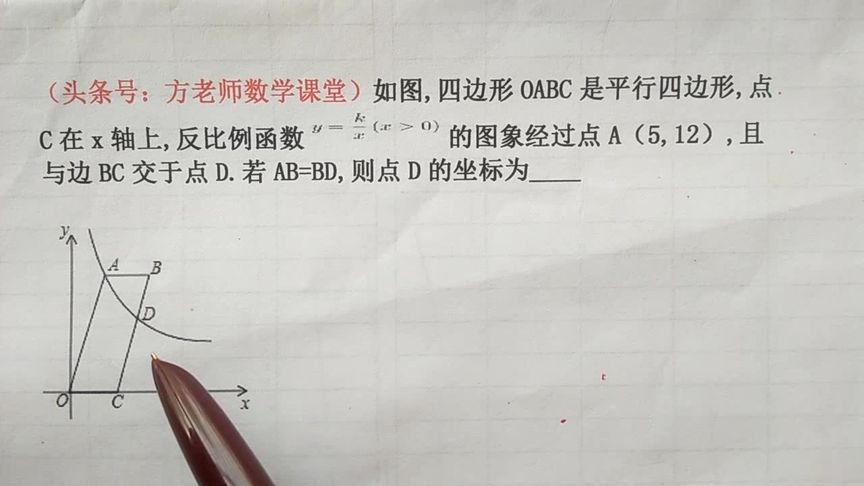 （头条号：方老师数学课堂）如图,四边形 OABC 是平行四边形,点
C 在 x 轴上,反比例函数 y = k/x (x > 0) 的图象经过点 A（5,12）,且
与边 BC 交于点 D.若 AB=BD,则点 D 的坐标为____
y
A B
D
O C x